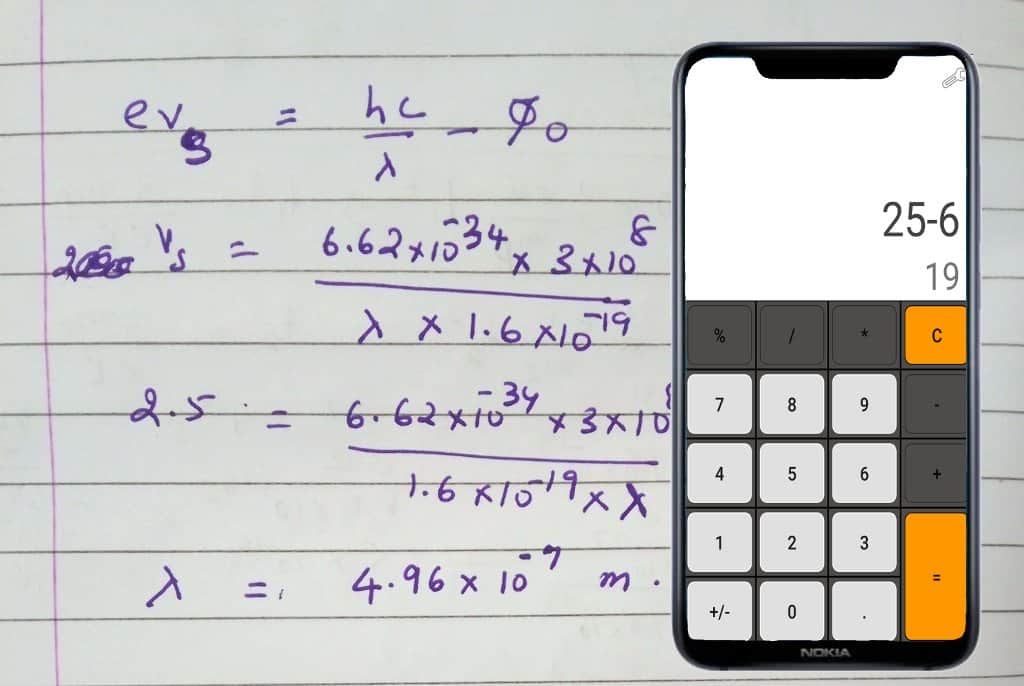 eVs = hc/λ - φ0
Vs = 6.62×10^-34 × 3×10^8 / λ × 1.6×10^-19
2.5 = 6.62×10^-34 × 3×10^8 / 1.6×10^-19 × λ
λ = 4.96 × 10^-7 m.
25-6
19
% / * C
7 8 9 -
4 5 6 +
1 2 3
=
+/- 0 .
NOKIA